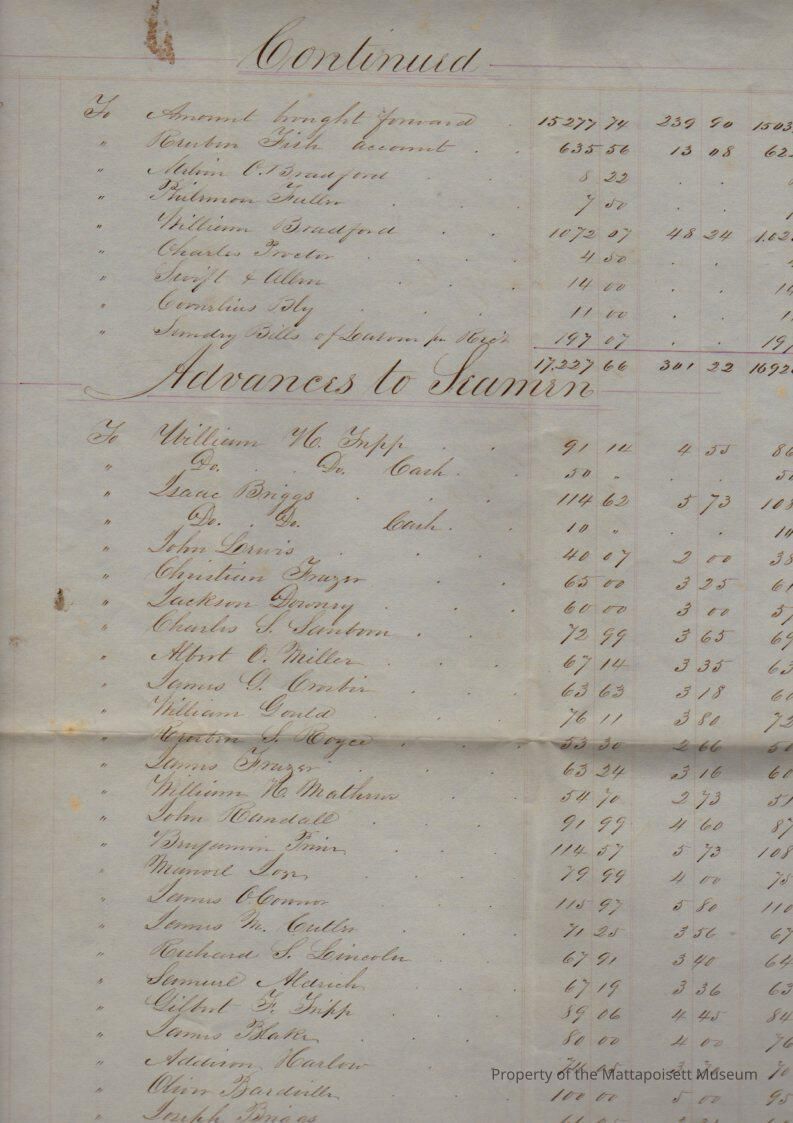 Continued
To Amount bought forward 15277 74 239 90 1503
" Reuben Fish account 635 56 13 08 62
" O. Bradford 8 22
" Philemon Fuller 7 50
" William Bradford 1072 07 48 24 102
" Charles Proctor 4 50
" Swift & Allen 14 00 14
" Cornelius Bly 11 00
" Sundry Bills of Labour pr Rec't 197 07 197
17,227 66 301 22 1692
Advances to Seamen
To William H. Tripp 91 14 4 55 86
" Do. Do. Cash 50 " 50
" Isaac Briggs 114 62 5 73 108
" Do. Do. Cash 10 " 10
" John Lewis 40 07 2 00 38
" Christian Frazer 65 00 3 25 61
" Jackson Downey 60 00 3 00 57
" Charles S. Sanborn 72 99 3 65 69
" Albert O. Miller 67 14 3 35 63
" James G. Crosbie 63 63 3 18 60
" William Gould 76 11 3 80 72
" S. Royce 53 30 2 66 50
" James Frazer 63 24 3 16 60
" William H. Mathews 54 70 2 73 51
" John Randall 91 99 4 60 87
" Benjamin 114 57 5 73 108
" Manoel 79 99 4 00 75
" James O'Connor 115 97 5 80 110
" James M. Cutler 71 25 3 56 67
" Richard S. Lincoln 67 91 3 40 64
" Samuel Aldrich 67 19 3 36 63
" Gilbert F. Tripp 89 06 4 45 84
" James Blake 80 00 4 00 76
" Addison Harlow 70
" Oliver Bardville 100 00 5 00 95
" Joseph Briggs
Property of the Mattapoisett Museum